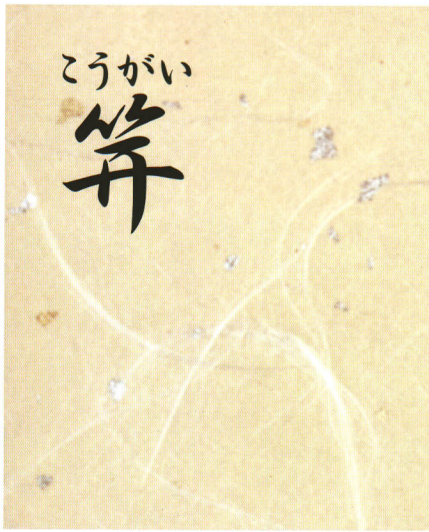 こうがい
笄